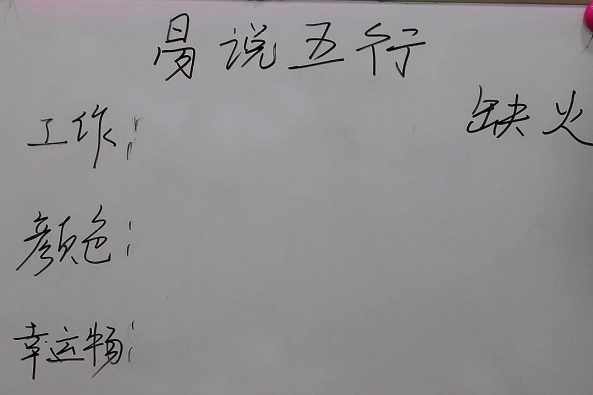 易说五行
缺火
工作:
颜色:
幸运物: